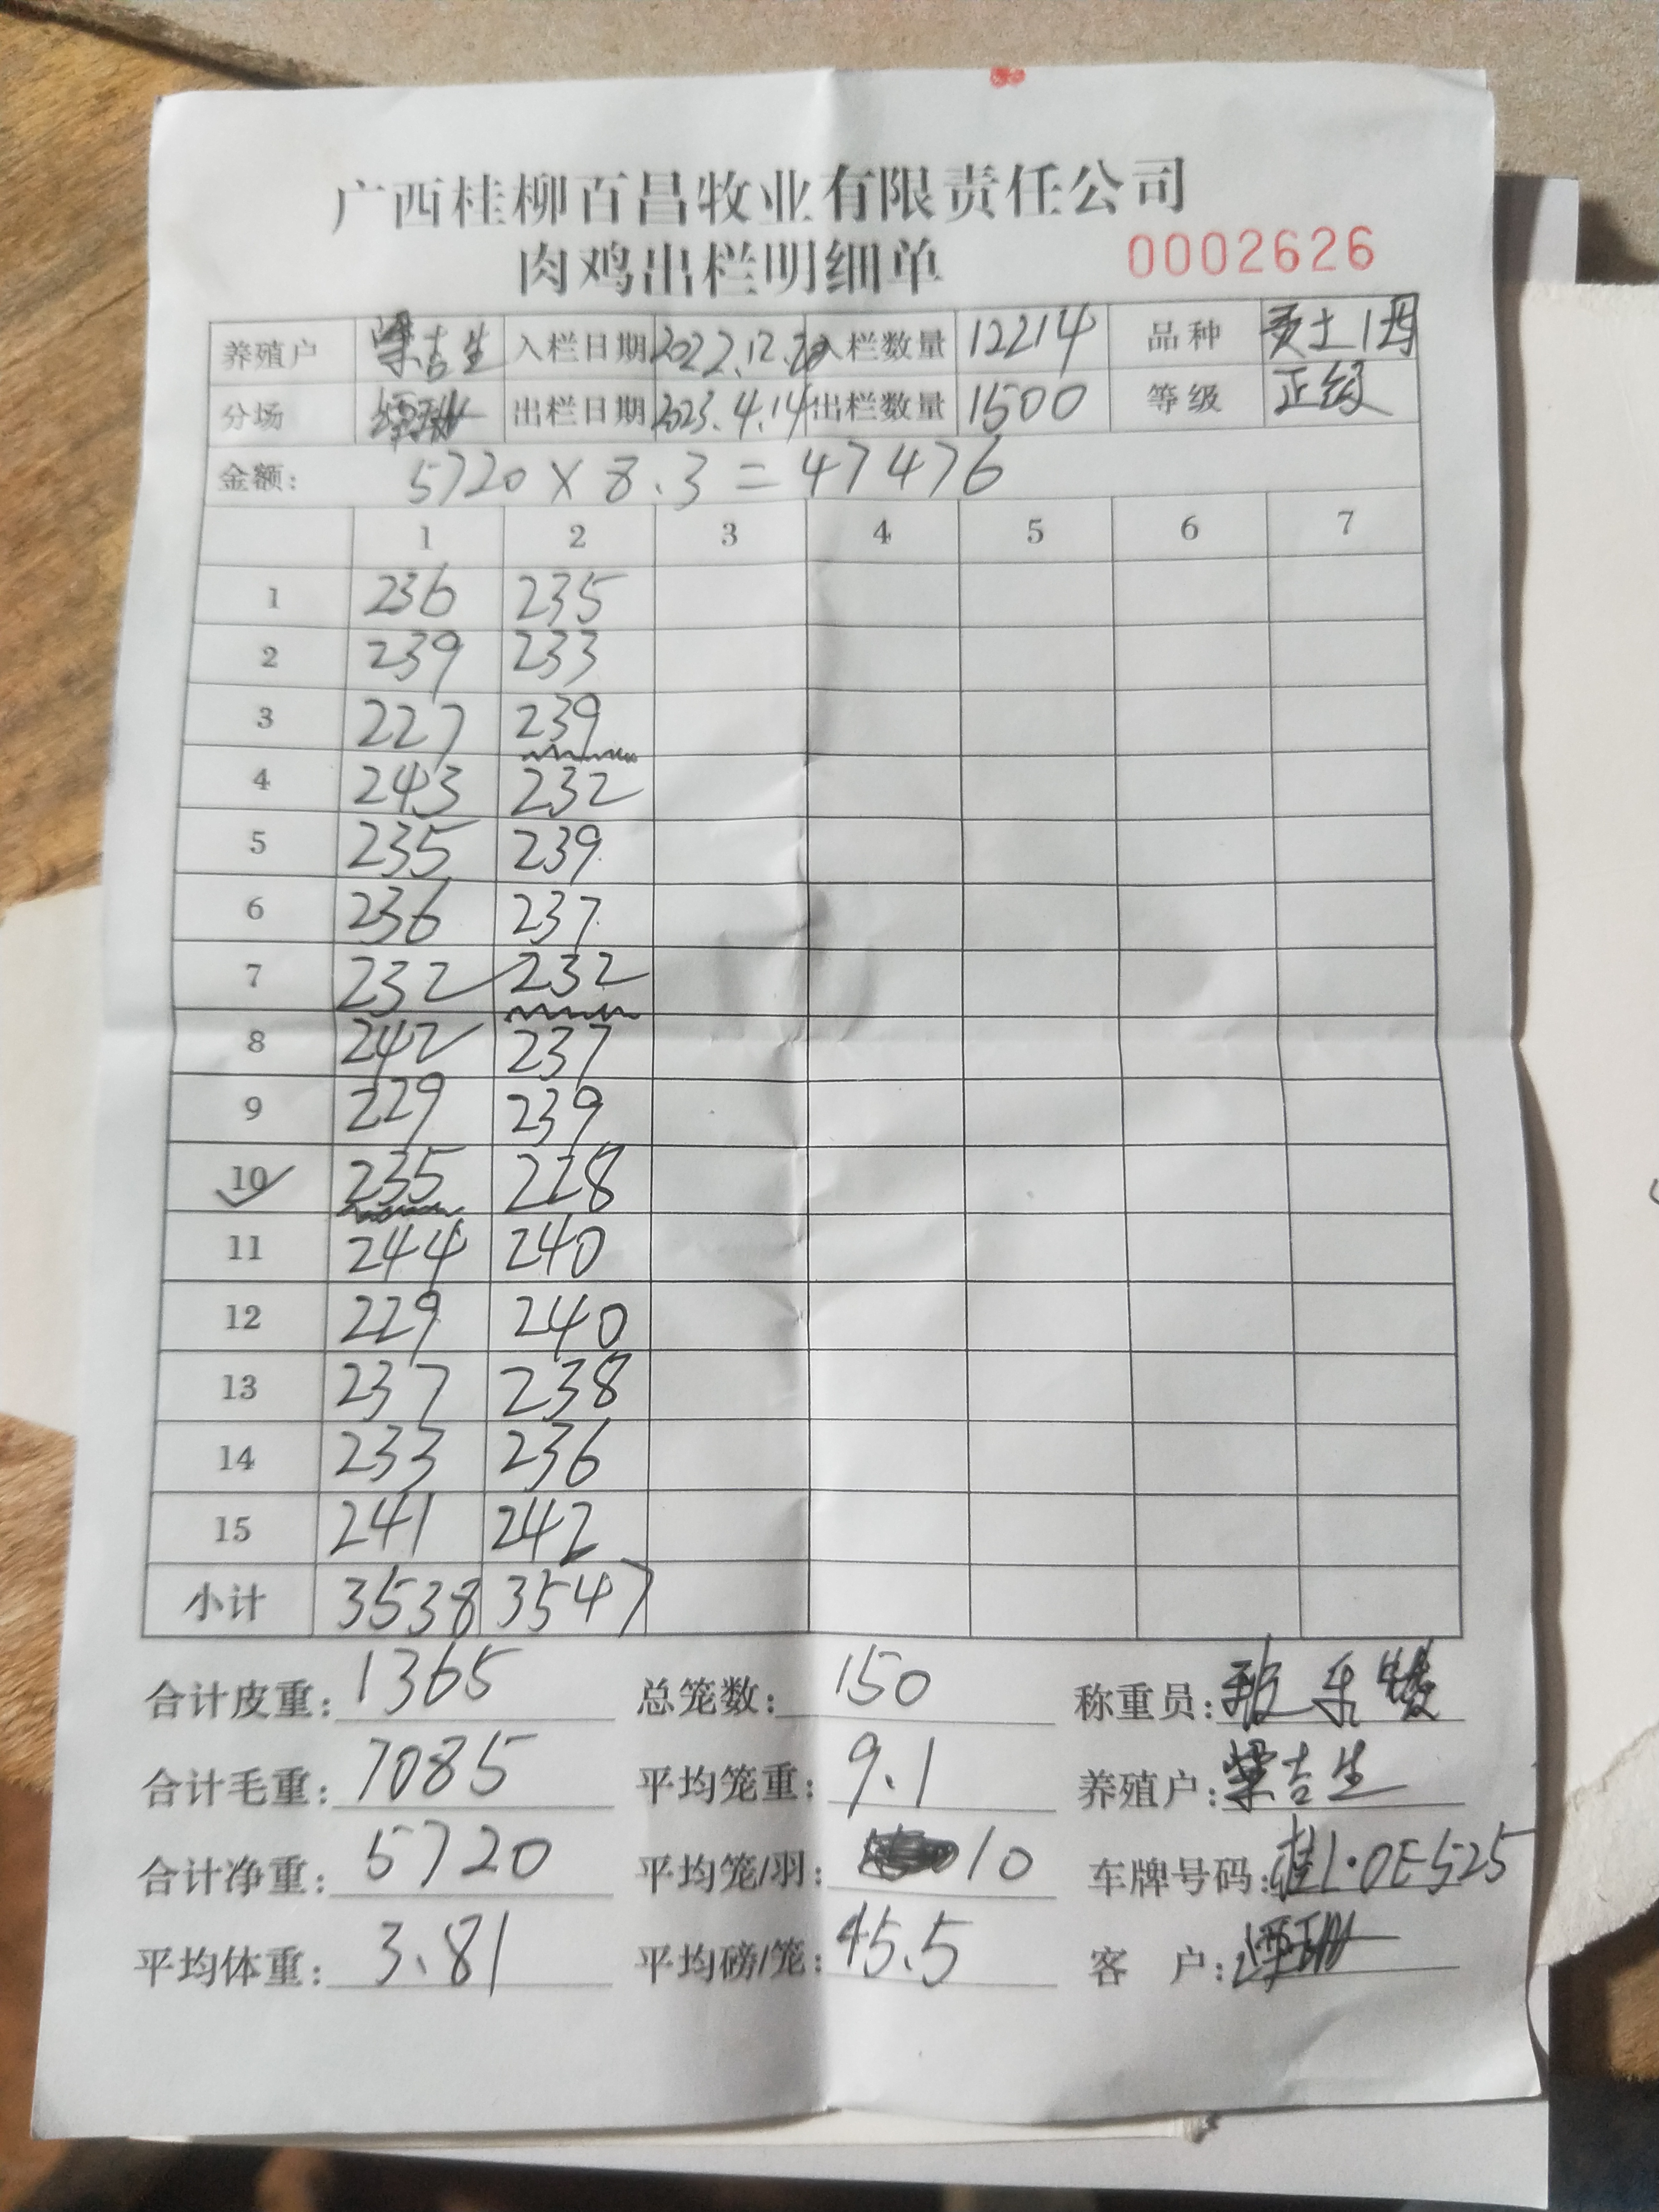 广西桂柳百昌牧业有限责任公司
肉鸡出栏明细单 0002626
养殖户 梁吉生 入栏日期 2022.12.20 入栏数量 12214 品种
分场 出栏日期 2023.4.14 出栏数量 1500 等级 正级
金额: 5720 × 8.3 = 47476
1 2 3 4 5 6 7
1 236 235
2 239 233
3 227 239
4 243 232
5 235 239
6 236 237
7 232 232
8 242 237
9 229 239
10 235 228
11 244 240
12 229 240
13 237 238
14 233 236
15 241 242
小计 3538 3547
合计皮重: 1365 总笼数: 150 称重员:
合计毛重: 7085 平均笼重: 9.1 养殖户: 梁吉生
合计净重: 5720 平均笼/羽: 10 车牌号码: 桂L·0E525
平均体重: 3.81 平均磅/笼: 45.5 客 户: